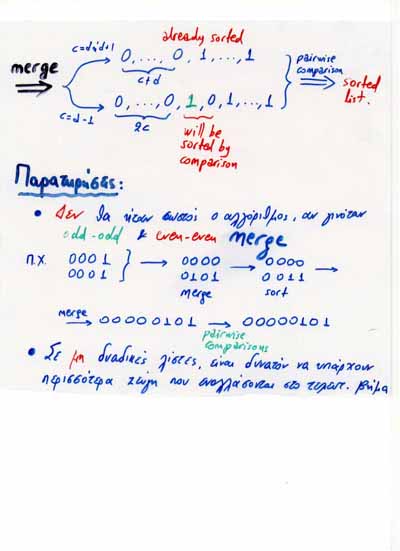 already sorted
c=d+1
0,...,0,1,...,1
c+d
merge
pairwise comparison
sorted list.
c=d-1
0,...,0,1,0,1,...,1
2c
will be sorted by comparison
Παρατηρήσεις:
• Δεν θα ήταν σωστός ο αλγόριθμος, αν γινόταν
odd-odd & even-even merge
π.χ. 0001 } → 0000 → 0000 →
0001 0101 0011
merge sort
merge → 00000101 → 00000101
pairwise comparisons
• Σε μη δυαδικές λίστες, είναι δυνατόν να υπάρχουν
περισσότερα ζεύγη που εναλλάσσονται στο τελευτ. βήμα